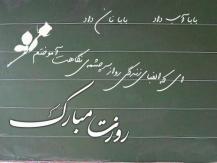 بابا آب داد بابا نان داد
ای که الفبای زندگی را از سرچشمهٔ نگاهت آموختم
روزت مبارک